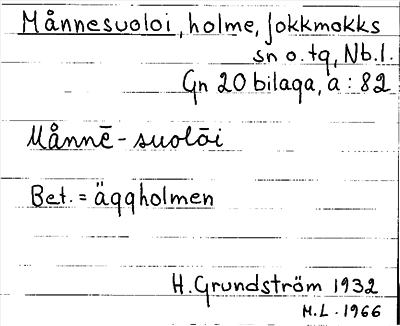 Månnesuoloi, holme, Jokkmokks
sn o. tg, Nb.l.
Gn 20 bilaga, a : 82
Månnē - suolōi
Bet. = äggholmen
H. Grundström 1932
M.L. 1966